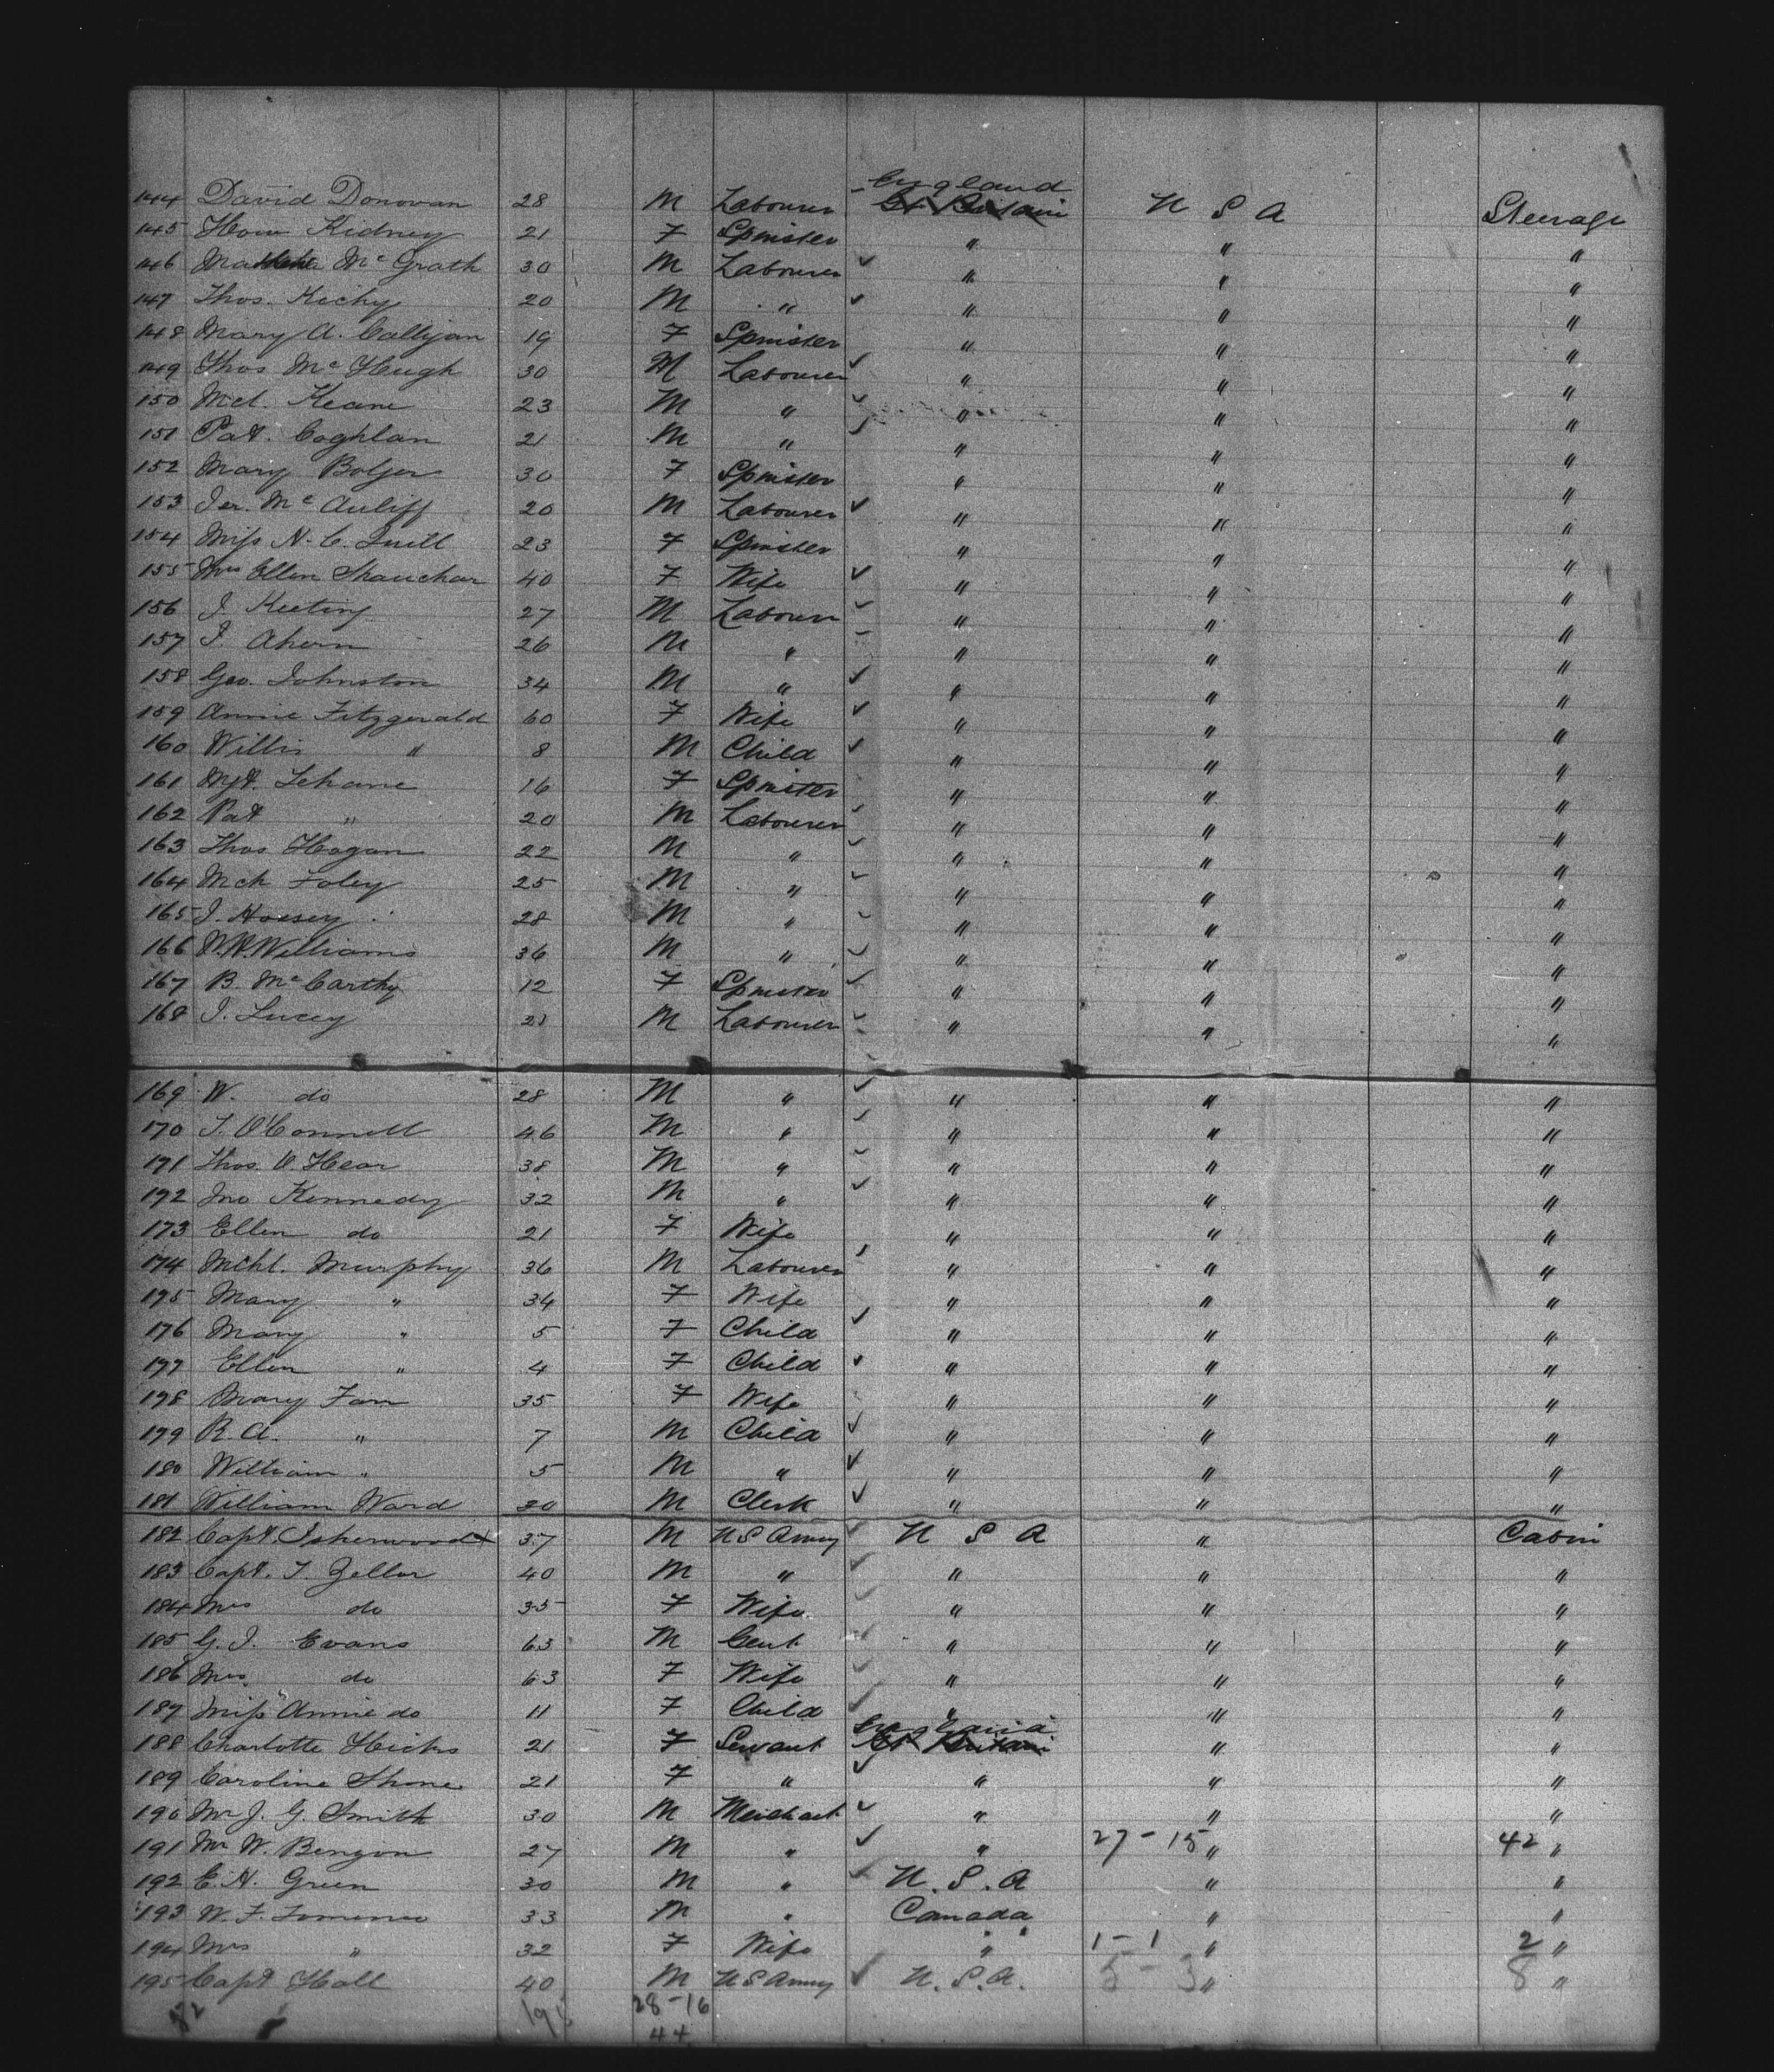 England
144 David Donovan 28 M Labourer Gt Britain U S A Steerage
145 Kidney 21 F Spinster " " "
146 Mc Grath 30 M Labourer " " "
147 Thos. 20 M " " " "
148 Mary A. 19 F Spinster " " "
149 Thos Mc Hugh 30 M Labourer " " "
150 Mcl. Keane 23 M " " " "
151 Pat. Coghlan 21 M " " " "
152 Mary Bolger 30 F Spinster " " "
153 Jer. Mc Auliff 20 M Labourer " " "
154 Miss N. C. Quill 23 F Spinster " " "
155 Mrs Ellen 40 F Wife " " "
156 J. Keeting 27 M Labourer " " "
157 J. Ahern 26 M " " " "
158 Geo. Johnston 34 M " " " "
159 Annie Fitzgerald 60 F Wife " " "
160 Willis " 8 M Child " " "
161 Mgt. Lehane 16 F Spinster " " "
162 Pat " 20 M Labourer " " "
163 Thos Hogan 22 M " " " "
164 Mch Foley 25 M " " " "
165 J. 28 M " " " "
166 Williams 36 M " " " "
167 B. McCarthy 12 F Spinster " " "
168 J. Lucey 21 M Labourer " " "
169 W. do 28 M " " " "
170 T. O'Connell 46 M " " " "
171 Thos. O. Hear 38 M " " " "
172 Jno Kennedy 32 M " " " "
173 Ellen do 21 F Wife " " "
174 Mchl. Murphy 36 M Labourer " " "
175 Mary " 34 F Wife " " "
176 Mary " 5 F Child " " "
177 Ellen " 4 F Child " " "
178 Mary Fam 35 F Wife " " "
179 R. A. " 7 M Child " " "
180 William " 5 M " " " "
181 William Ward 20 M Clerk " " "
182 Capt. Isherwood 37 M U S Army U S A " Cabin
183 Capt. T. Zeller 40 M " " " "
184 Mrs do 35 F Wife " " "
185 G. J. Evans 63 M Gent " " "
186 Mrs. do 63 F Wife " " "
187 Miss Annie do 11 F Child " " "
England
188 Charlotte Hicks 21 F Servant Gt Britain " "
189 Caroline Shone 21 F " " " "
190 Mr J. G. Smith 30 M Merchant " " "
191 Mr W. Bengon 27 M " " 27-15 " 42 "
192 E. H. Green 30 M " U. S. A " "
193 W. F. 33 M " Canada " "
194 Mrs " 32 F Wife " 1-1 " 2 "
195 Capt Hall 40 M U S Army U. S. A. 5-3 " 8 "
52 195 28-16
44